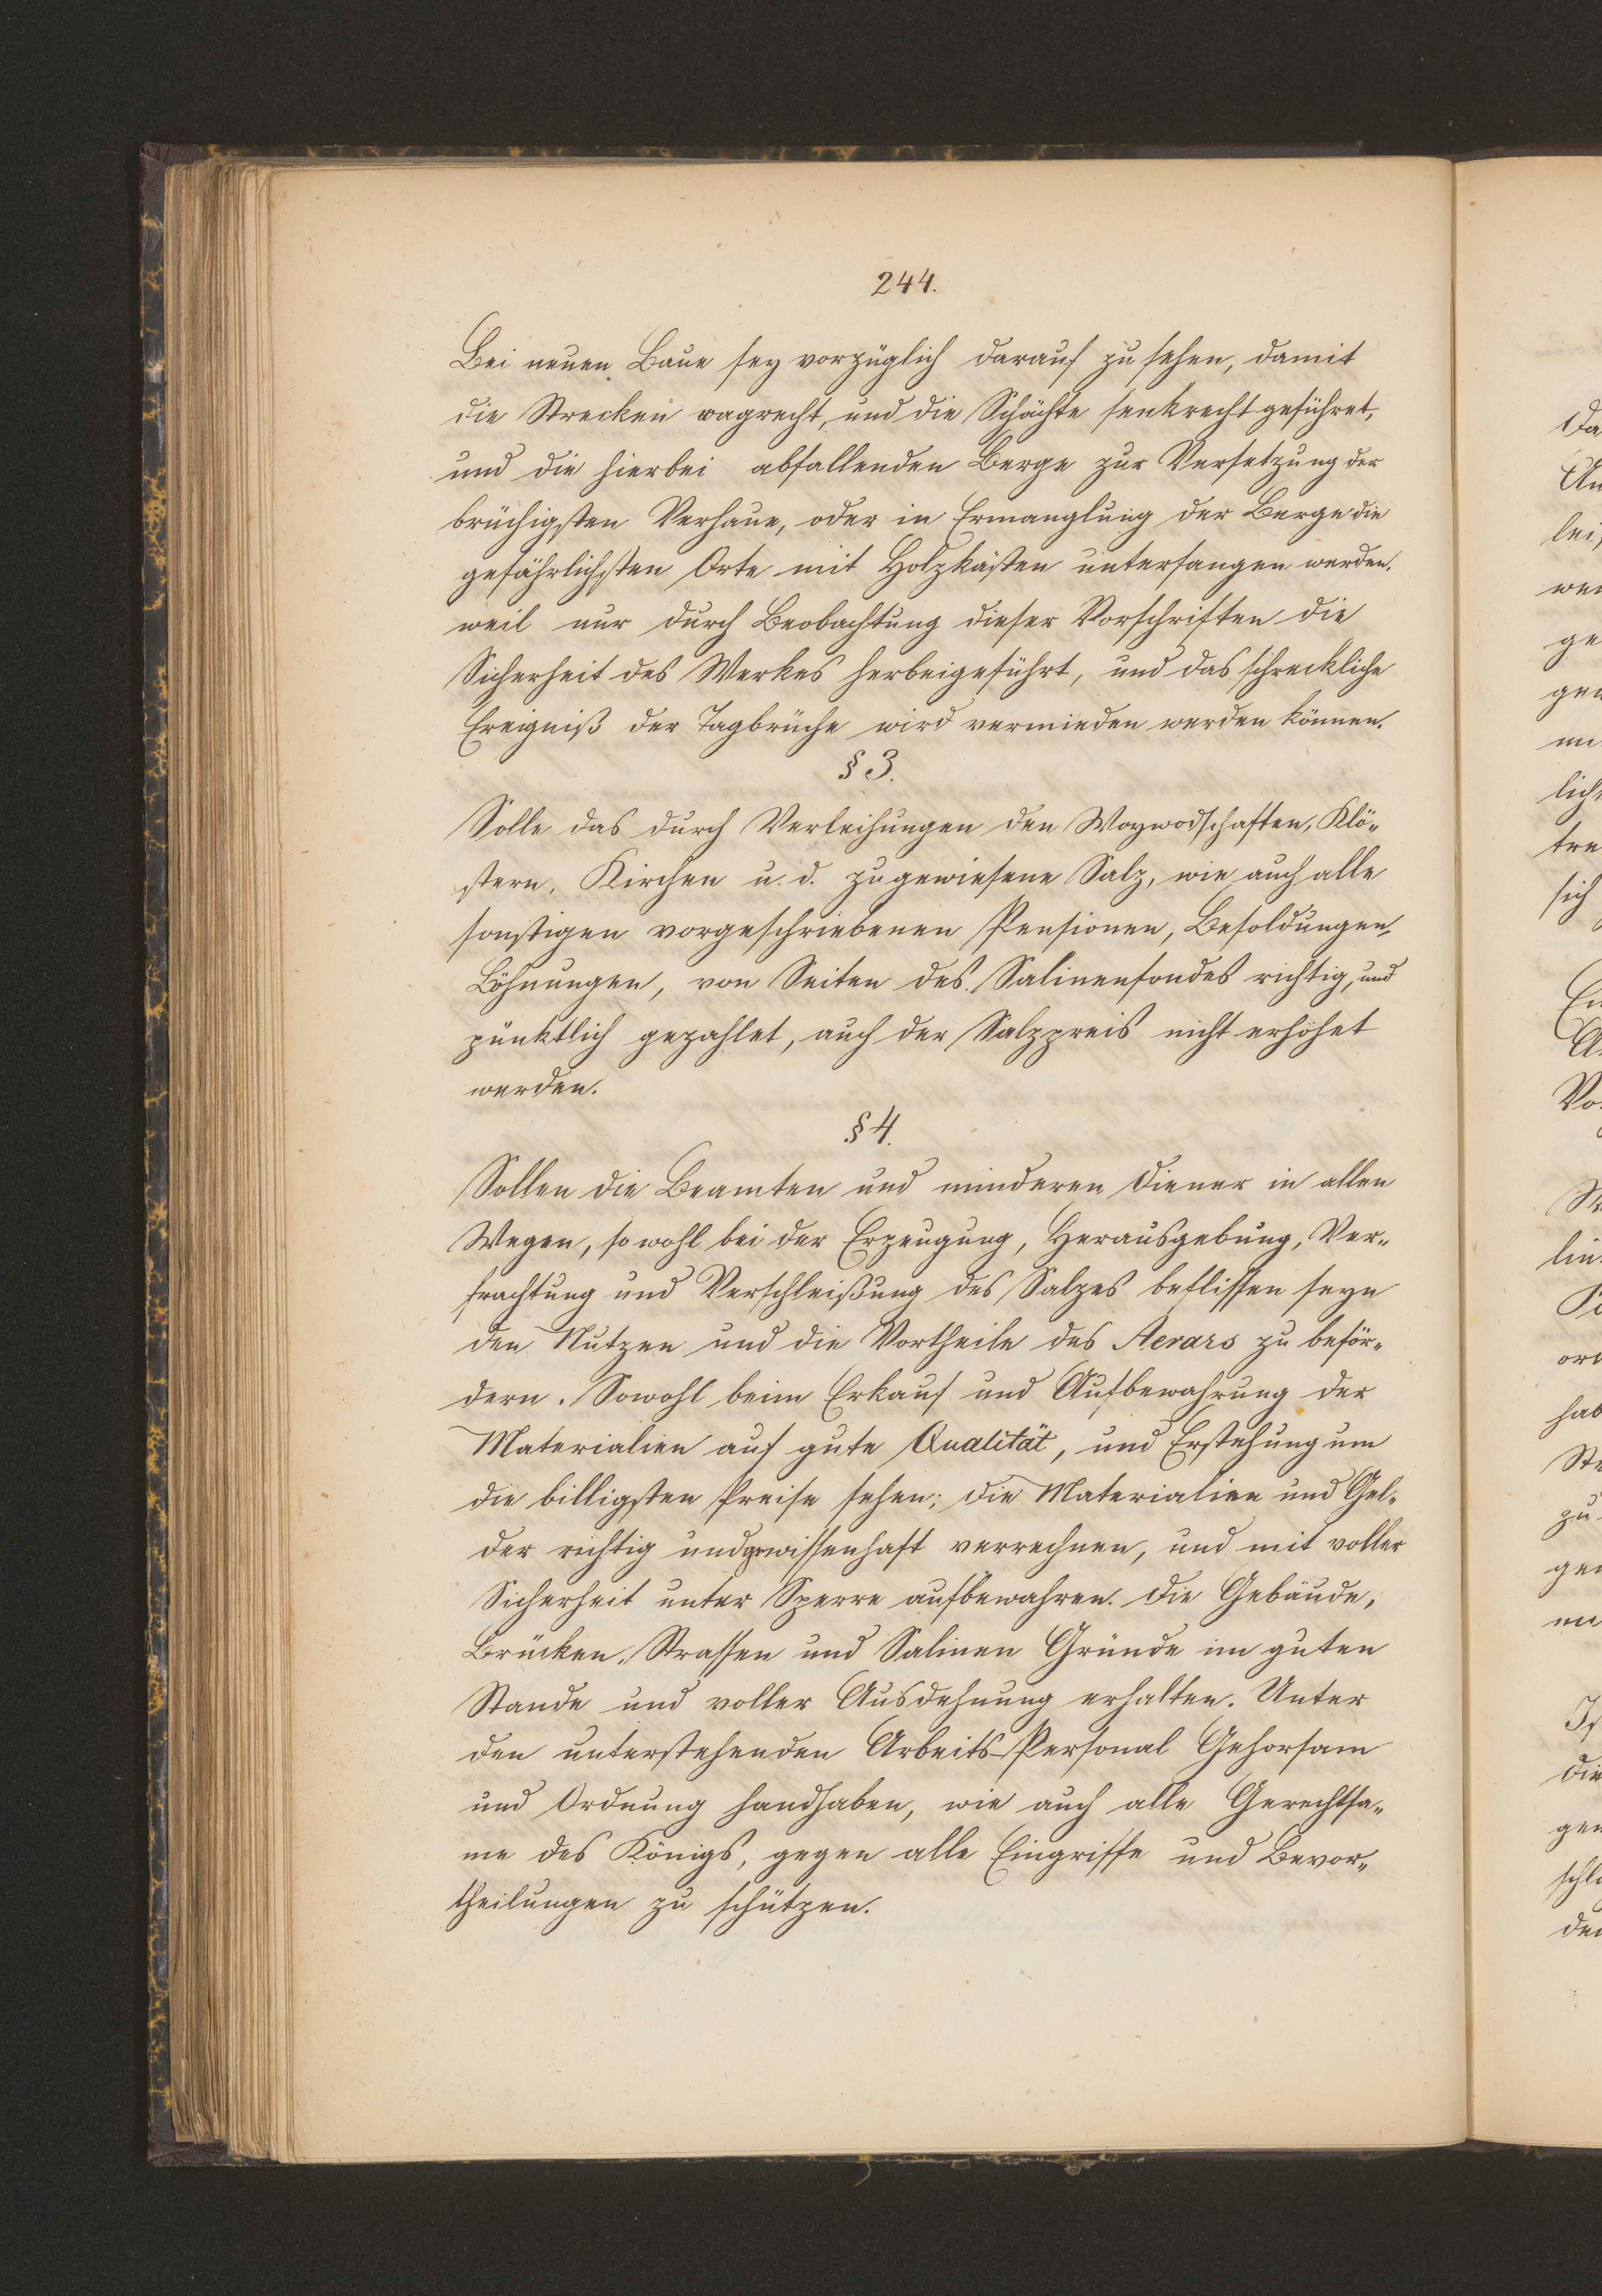 244.
Bei neuen Baue sey vorzüglich darauf zu sehen, damit
die Strecken wagrecht, und die Schächte senkrecht geführet,
und die hierbei abfallenden Berge zur Versetzung der
brüchigsten Verhaue, oder in Ermanglung der Berge die
gefährlichsten Orte mit Holzkästen unterfangen werden.
weil nur durch Beobachtung dieser Vorschriften die
Sicherheit des Werkes herbeigeführt, und das schreckliche
Ereigniß der Tagbrüche wird vermieden werden können.
§ 3.
Solle das durch Verleihungen den Woywodschaften, Klö„
stern, Kirchen u. d. zugewiesene Salz, wie auch alle
sonstigen vorgeschriebenen Pensionen, Besoldungen,
Löhnungen, von Seiten des Salinenfondes richtig, und
pünktlich gezahlet, auch der Salzpreis nicht erhöhet
werden.
§ 4.
Sollen die Beamten und minderen Diener in allen
Wegen, so wohl bei der Erzeugung, Herausgebung, Ver„
frachtung und Verschleißung des Salzes beflissen seyn
den Nutzen und die Vortheile des Aerars zu beför„
dern. Sowohl beim Erkauf und Aufbewahrung der
Materialien auf gute Qualität, und Erstehung um
die billigsten Preise sehen; die Materialien und Gel„
der richtig und gewissenhaft verrechnen, und mit voller
Sicherheit unter Sperre aufbewahren. Die Gebäude,
Brücken, Strassen und Salinen Gründe im guten
Stande und voller Ausdehnung erhalten. Unter
den unterstehenden Arbeits-Personal Gehorsam
und Ordnung handhaben, wie auch alle Gerechtsa„
me des Königs, gegen alle Eingriffe und Bevor„
theilungen zu schützen.